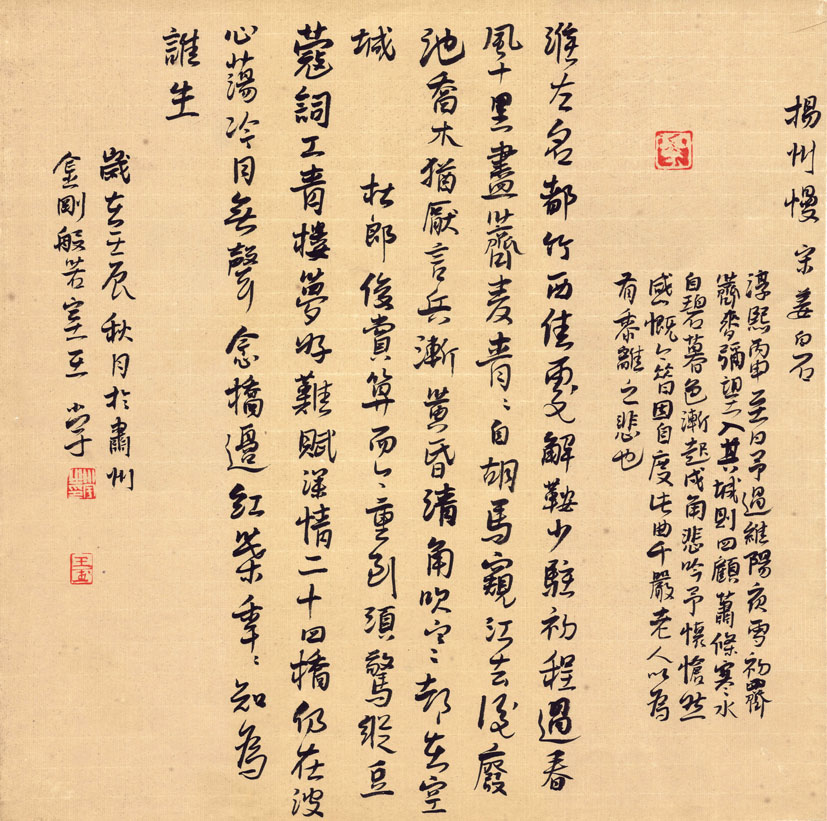 揚州慢 宋 姜白石
淳熙丙申至日予過維陽夜雪初霽
薺麥彌望入其城則四顧蕭條寒水
自碧暮色漸起戍角悲吟予懷愴然
感慨今昔因自度此曲千巖老人以為
有黍離之悲也
淮左名都竹西佳處解鞍少駐初程過春
風十里盡薺麥青青自胡馬窺江去後廢
池喬木猶厭言兵漸黃昏清角吹空都在空
城 杜郎俊賞算而今重到須驚縱豆
蔻詞工青樓夢好難賦深情二十四橋仍在波
心蕩冷月無聲念橋邊紅藥年年知為
誰生
歲在壬辰秋月於肅州
金剛般若室